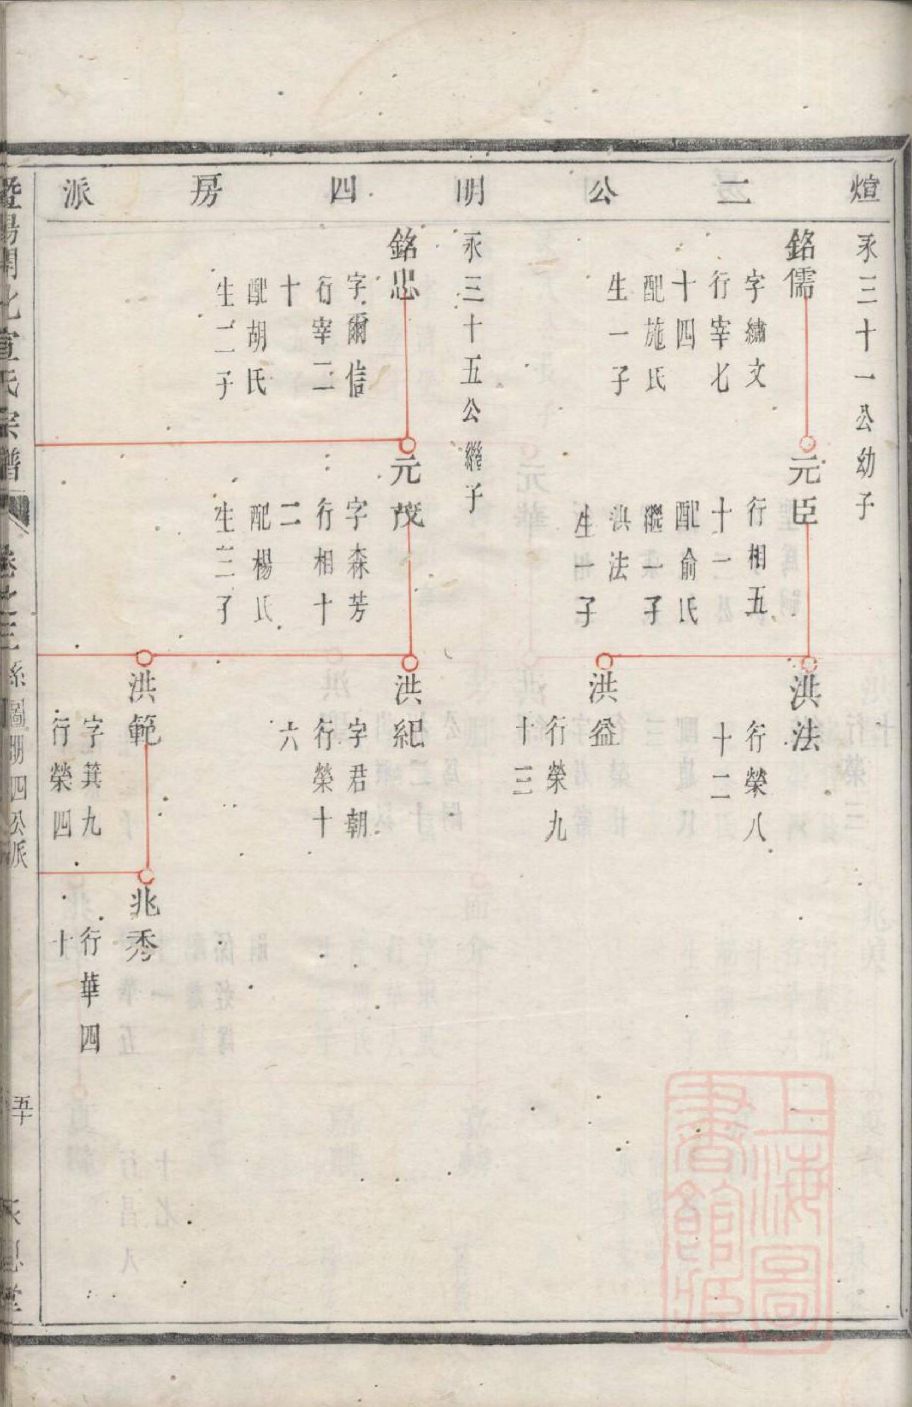 煊二公明四房派
永三十一公幼子
銘儒
字繡文
行宰七
十四
配施氏
生一子
元臣
行相五
十一
配俞氏
繼一子
洪法
生一子
洪法
行榮八
十二
洪益
行榮九
十三
永三十五公繼子
銘忠
字爾信
行宰二
十
配胡氏
生二子
元茂
字森芳
行相十
二
配楊氏
生三子
洪紀
字君朝
行榮十
六
洪範
字箕九
行榮四
兆秀
行華四
十
暨陽開化宣氏宗譜
系圖明四公派
五十
永思堂
上海圖書館